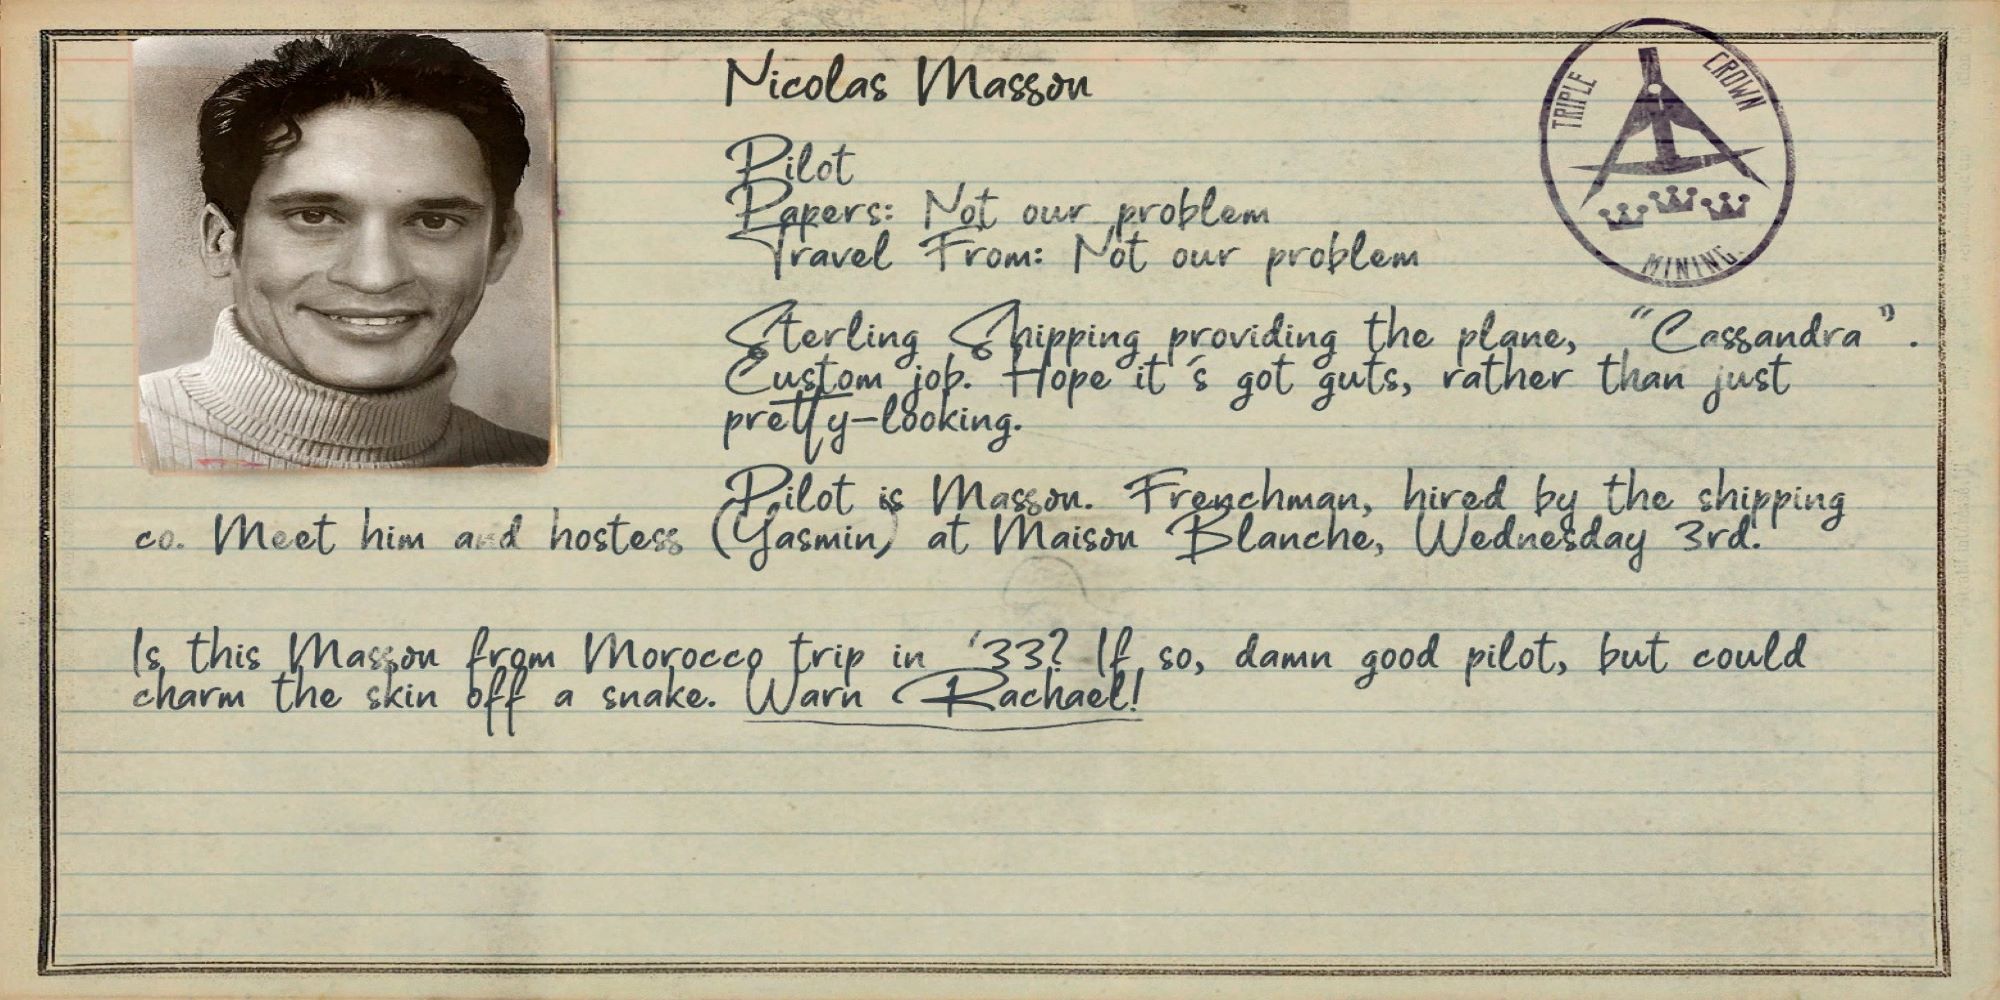 Nicolas Masson
TRIPLE CROWN
MINING.
Pilot
Papers: Not our problem
Travel From: Not our problem
Sterling Shipping providing the plane, "Cassandra".
Custom job. Hope it's got guts, rather than just
pretty-looking.
Pilot is Masson. Frenchman, hired by the shipping
co. Meet him and hostess (Yasmin) at Maison Blanche, Wednesday 3rd.
Is this Masson from Morocco trip in '33? If so, damn good pilot, but could
charm the skin off a snake. Warn Rachael!